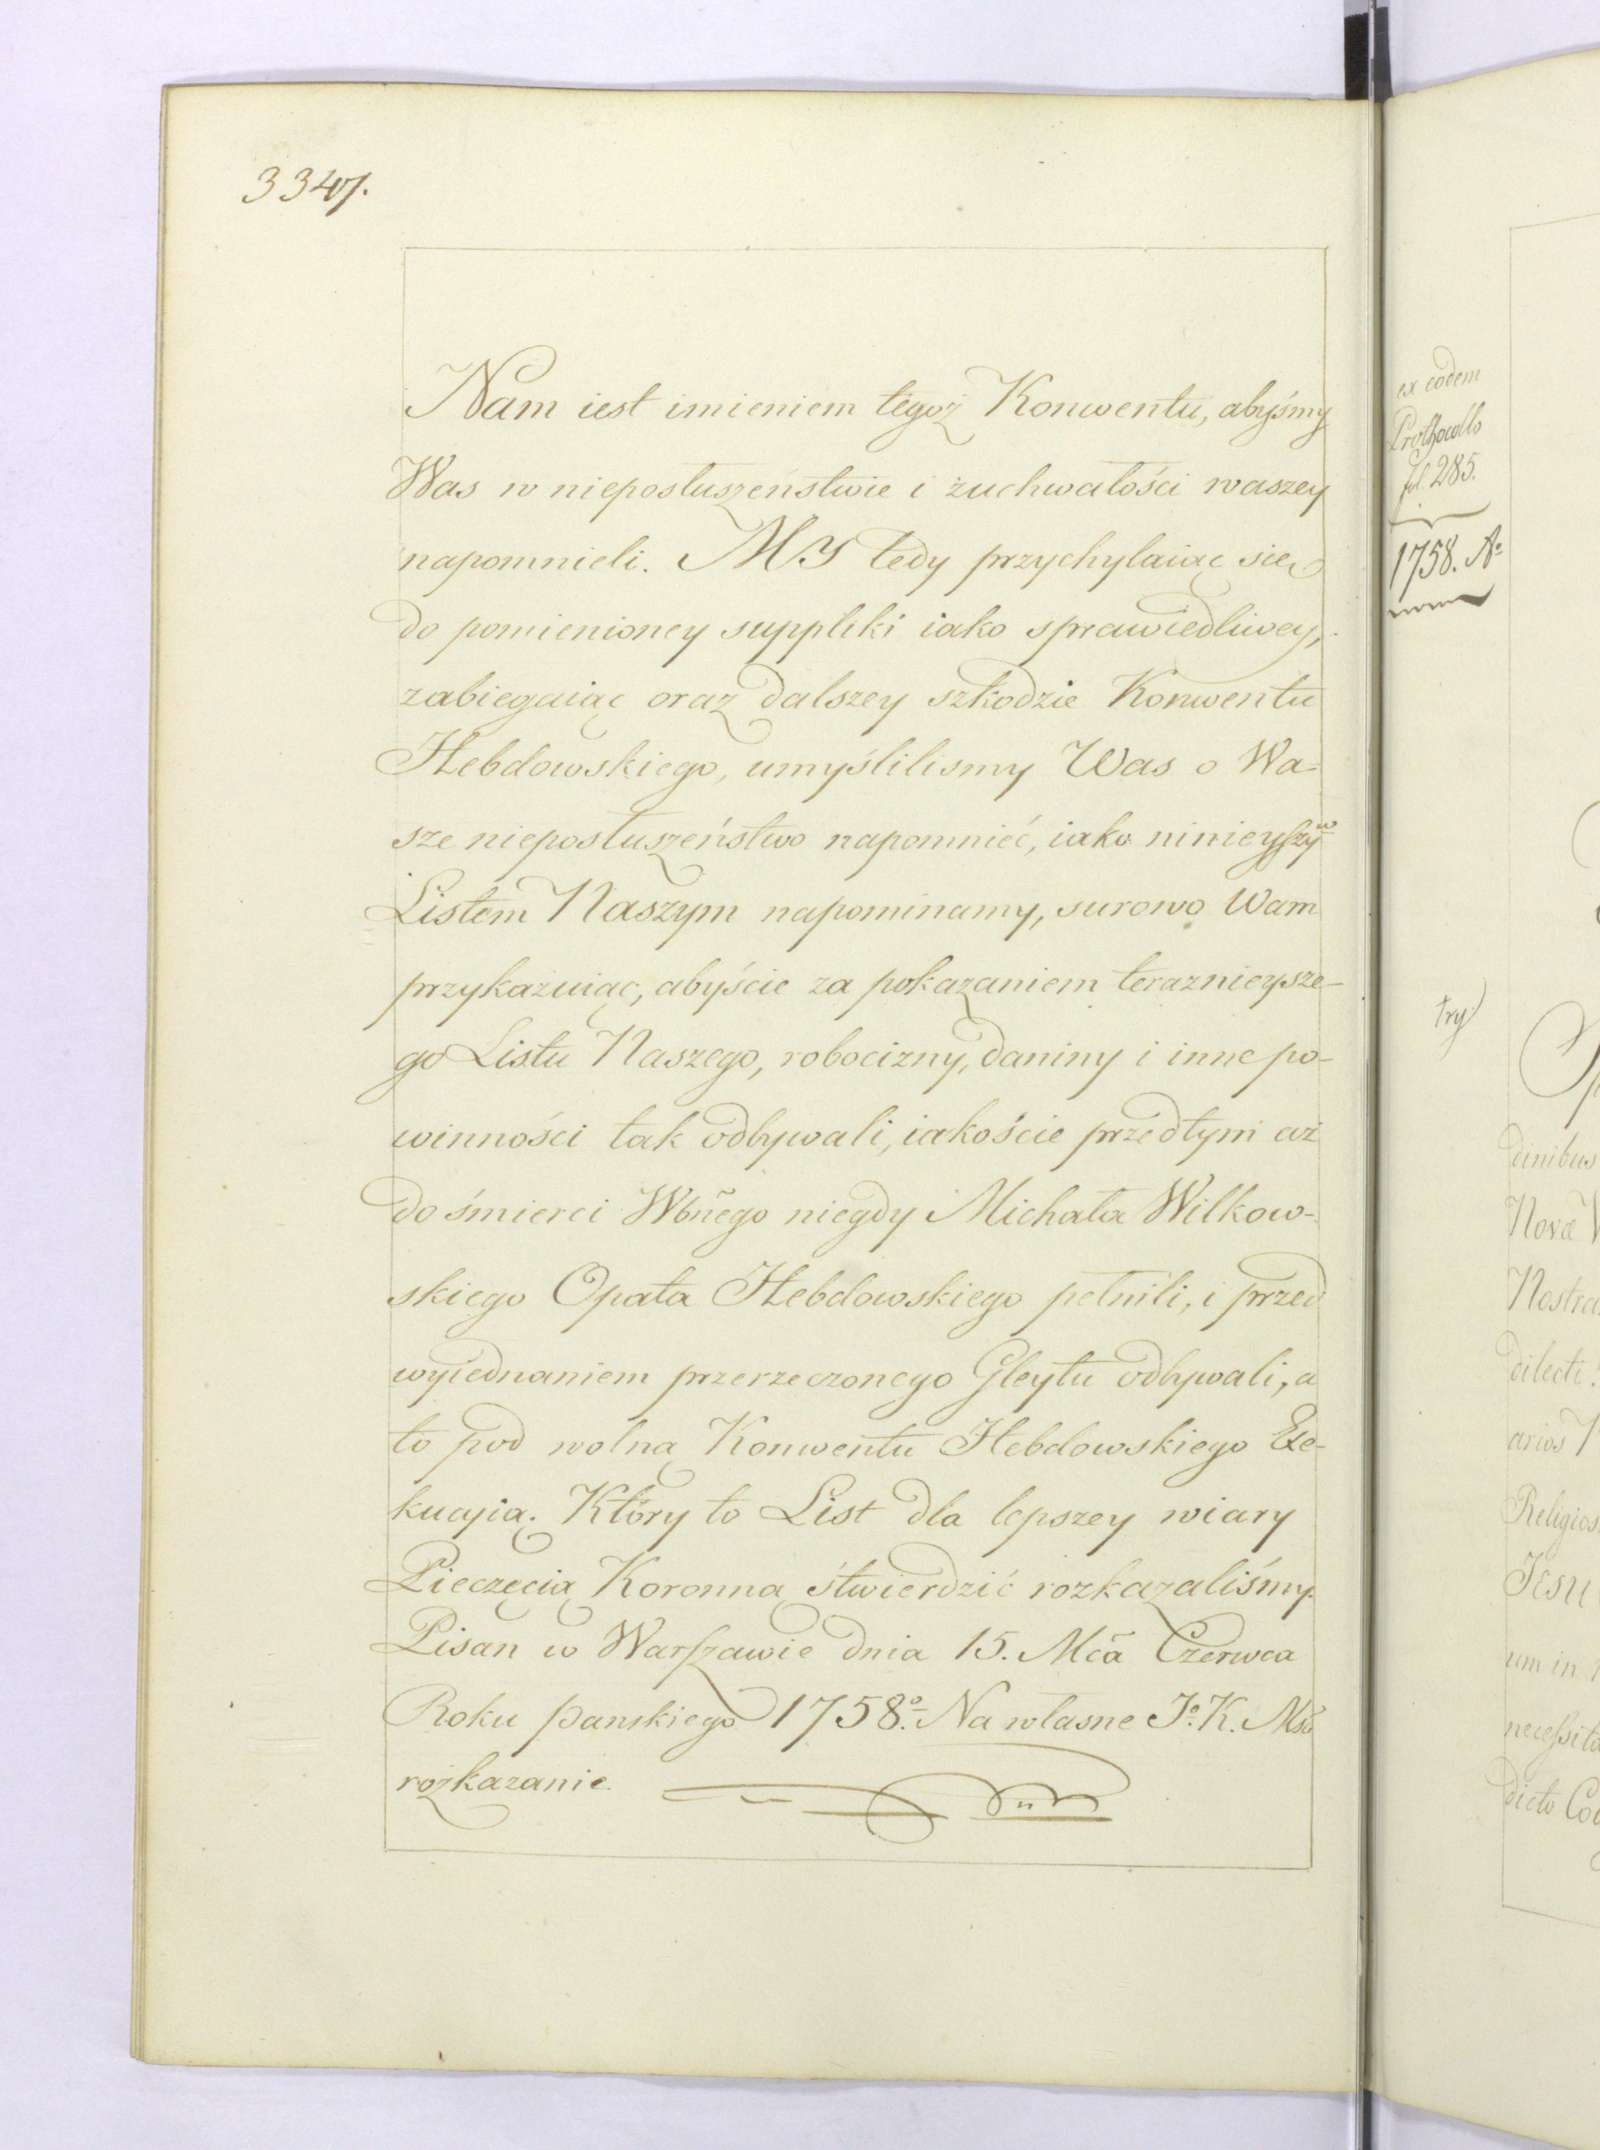 3347.
Nam iest imieniem tegoż Konwentu, abyśmy
Was w nieposłuszeństwie i zuchwałości waszey
napomnieli. MY tedy przychylaiąc się
do pomienioney suppliki iako sprawiedliwey,
zabiegaiąc oraz dalszey szkodzie Konwentu
Hebdowskiego, umyślilismy Was o Wa-
sze nieposłuszeństwo napomnieć, iako ninieyszym
Listem Naszym napominamy, surowo Wam
przykazuiąc, abyście za pokazaniem teraznieysze-
go Listu Naszego, robocizny, daniny i inne po-
winności tak odbywali, iakoście przedtym aż
do śmierci Wbñego niegdy Michała Wilkow-
skiego Opata Hebdowskiego pełnili, i przed
wyiednaniem przerzeczonego Gleytu odbywali, a
to pod wolną Konwentu Hebdowskiego Exe-
kucyią. Który to List dla lepszey wiary
Pieczęcią Koronną stwierdzić rozkazaliśmy.
Pisan w Warszawie dnia 15. Mca Czerwca
Roku Panskiego 1758º. Na własne Jº. K. Mśći
rozkazanie.
ex eodem
Prothocollo
fol. 285.
1758. Aº
try)
dinibus
Novæ
Nostra
dilecti
arios
Religios
Jesu
um in
necessita
dicto